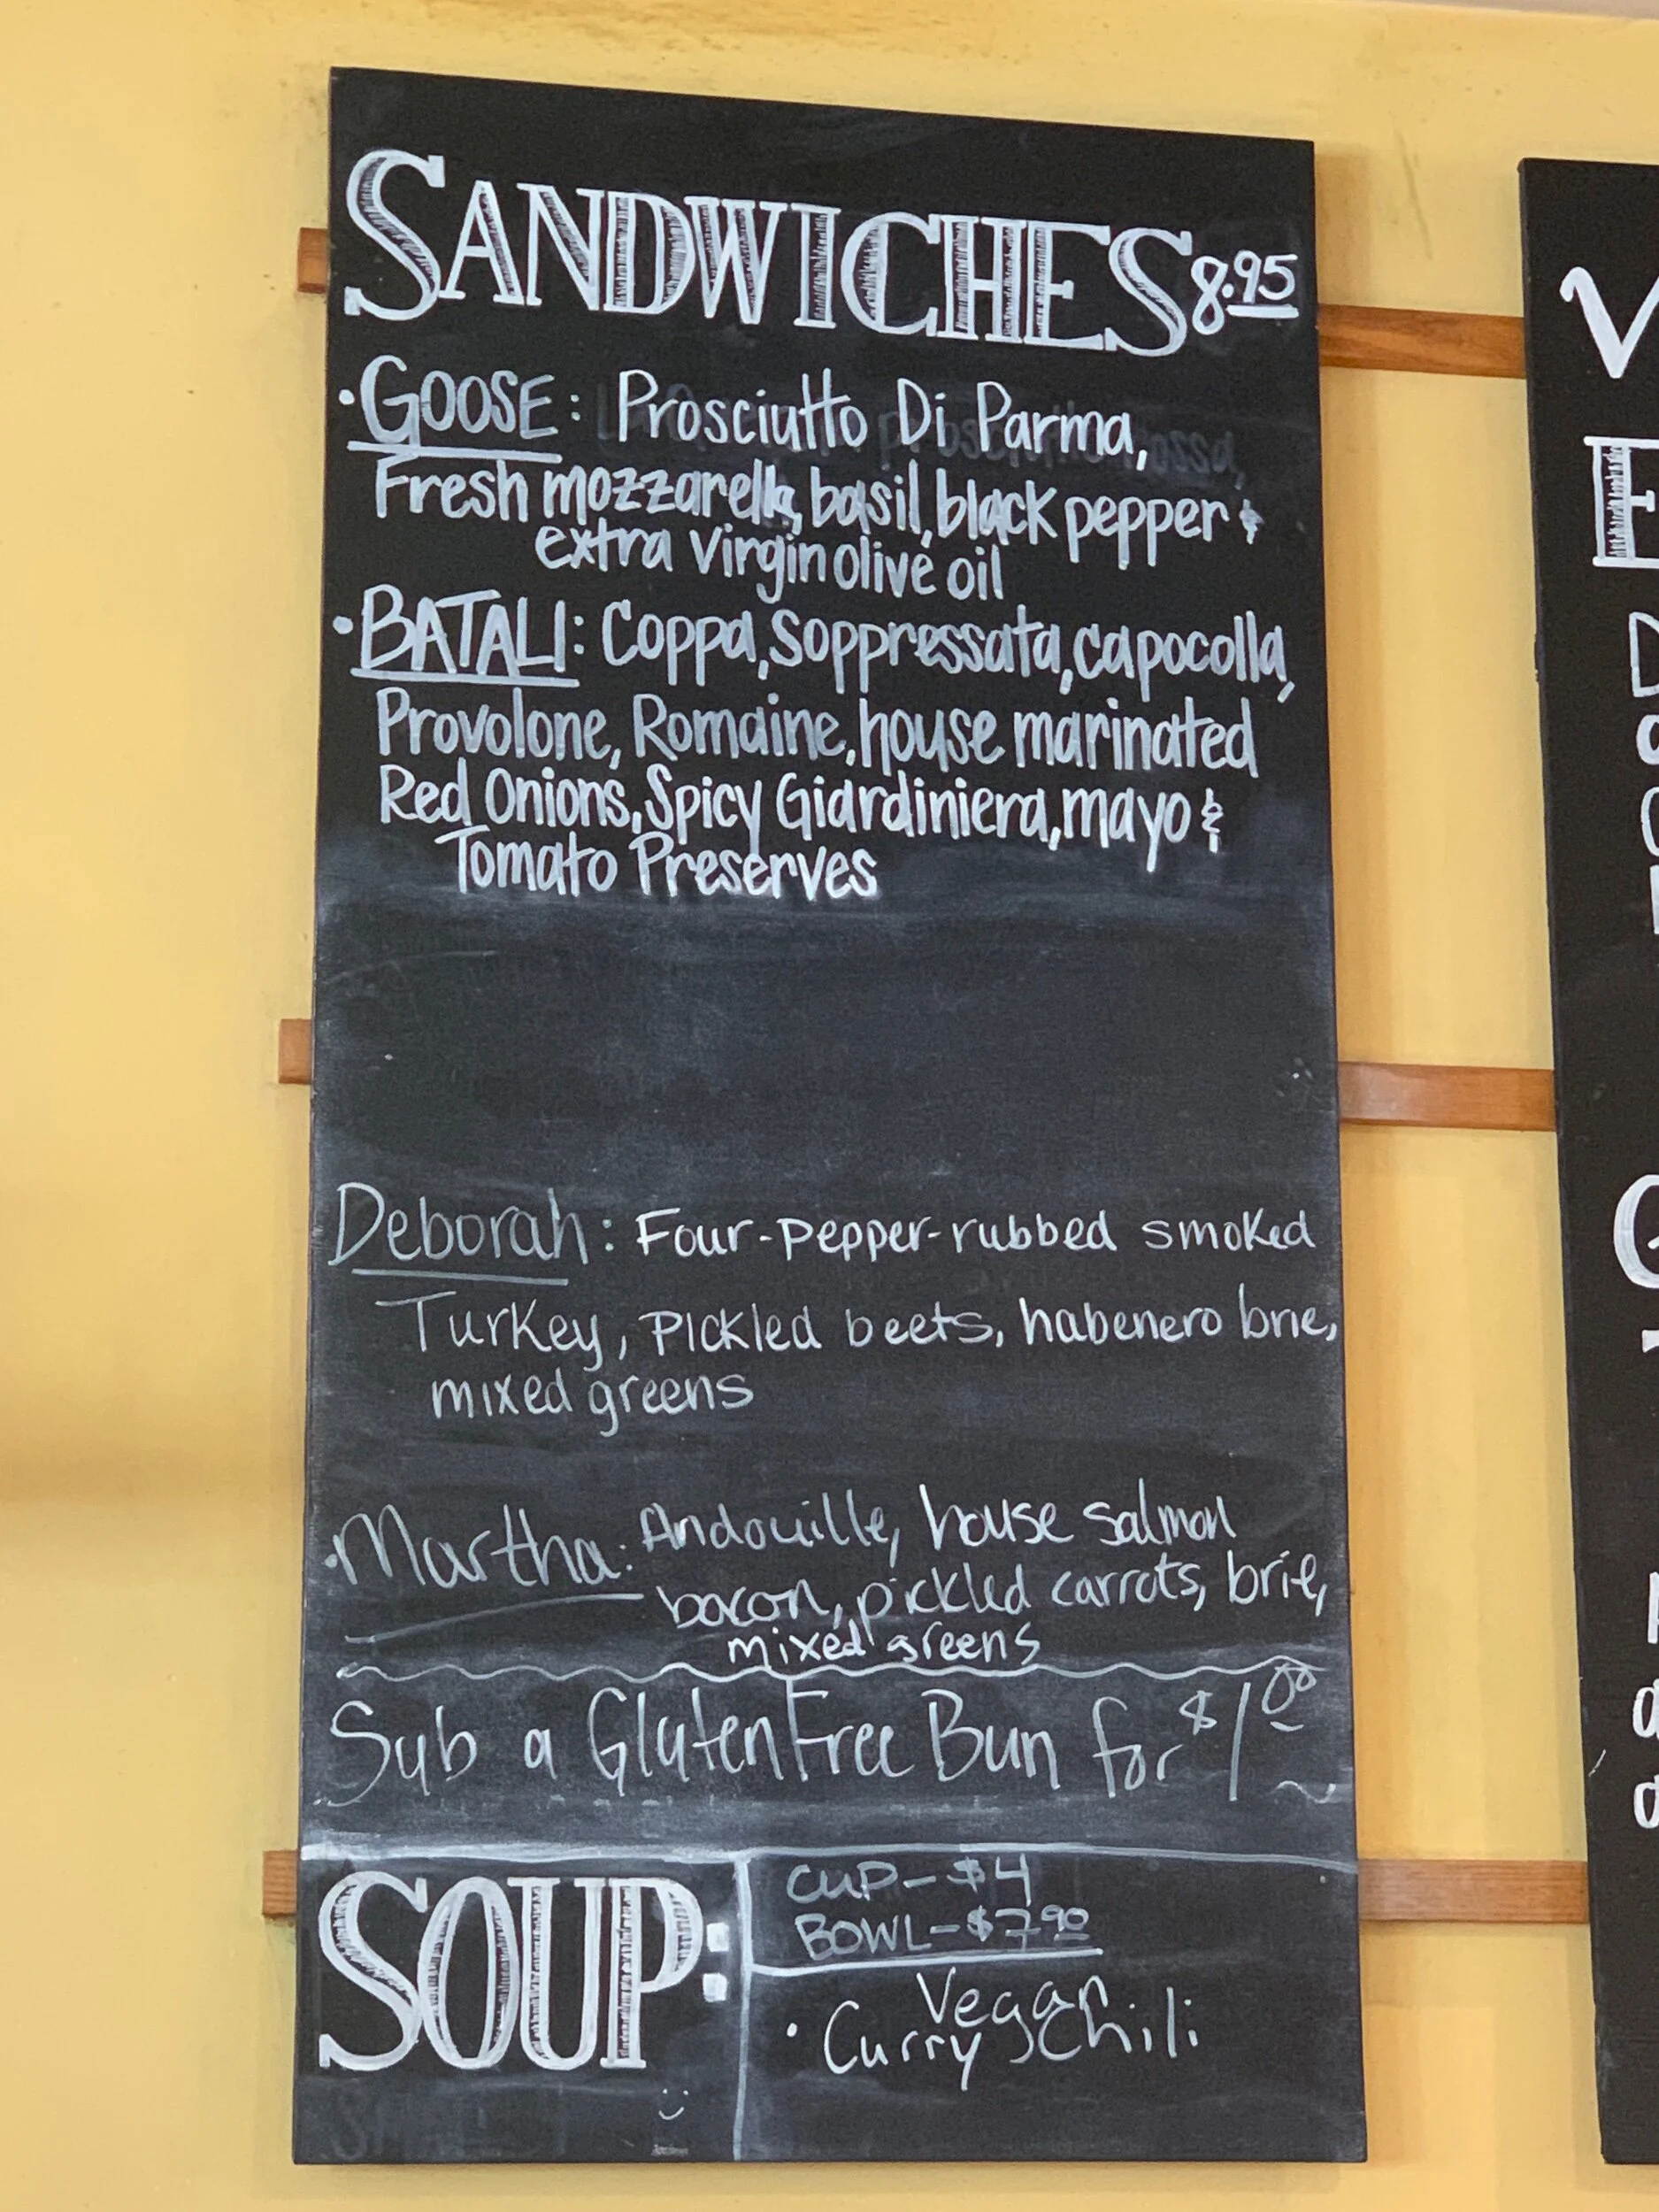 SANDWICHES 8.95
• GOOSE: Prosciutto Di Parma,
Fresh mozzarella, basil, black pepper &
extra Virgin olive oil
• BATALI: Coppa, Soppressata, capocolla,
Provolone, Romaine, house marinated
Red Onions, Spicy Giardiniera, mayo &
Tomato Preserves
Deborah: Four-Pepper-rubbed smoked
Turkey, Pickled beets, habenero brie,
mixed greens
• Martha: Andouille, house salmon
bacon, pickled carrots, brie,
mixed greens
Sub a Gluten Free Bun for $1.00
SOUP:
CUP - $4
BOWL - $7.90
Vegan
• Curry Chili